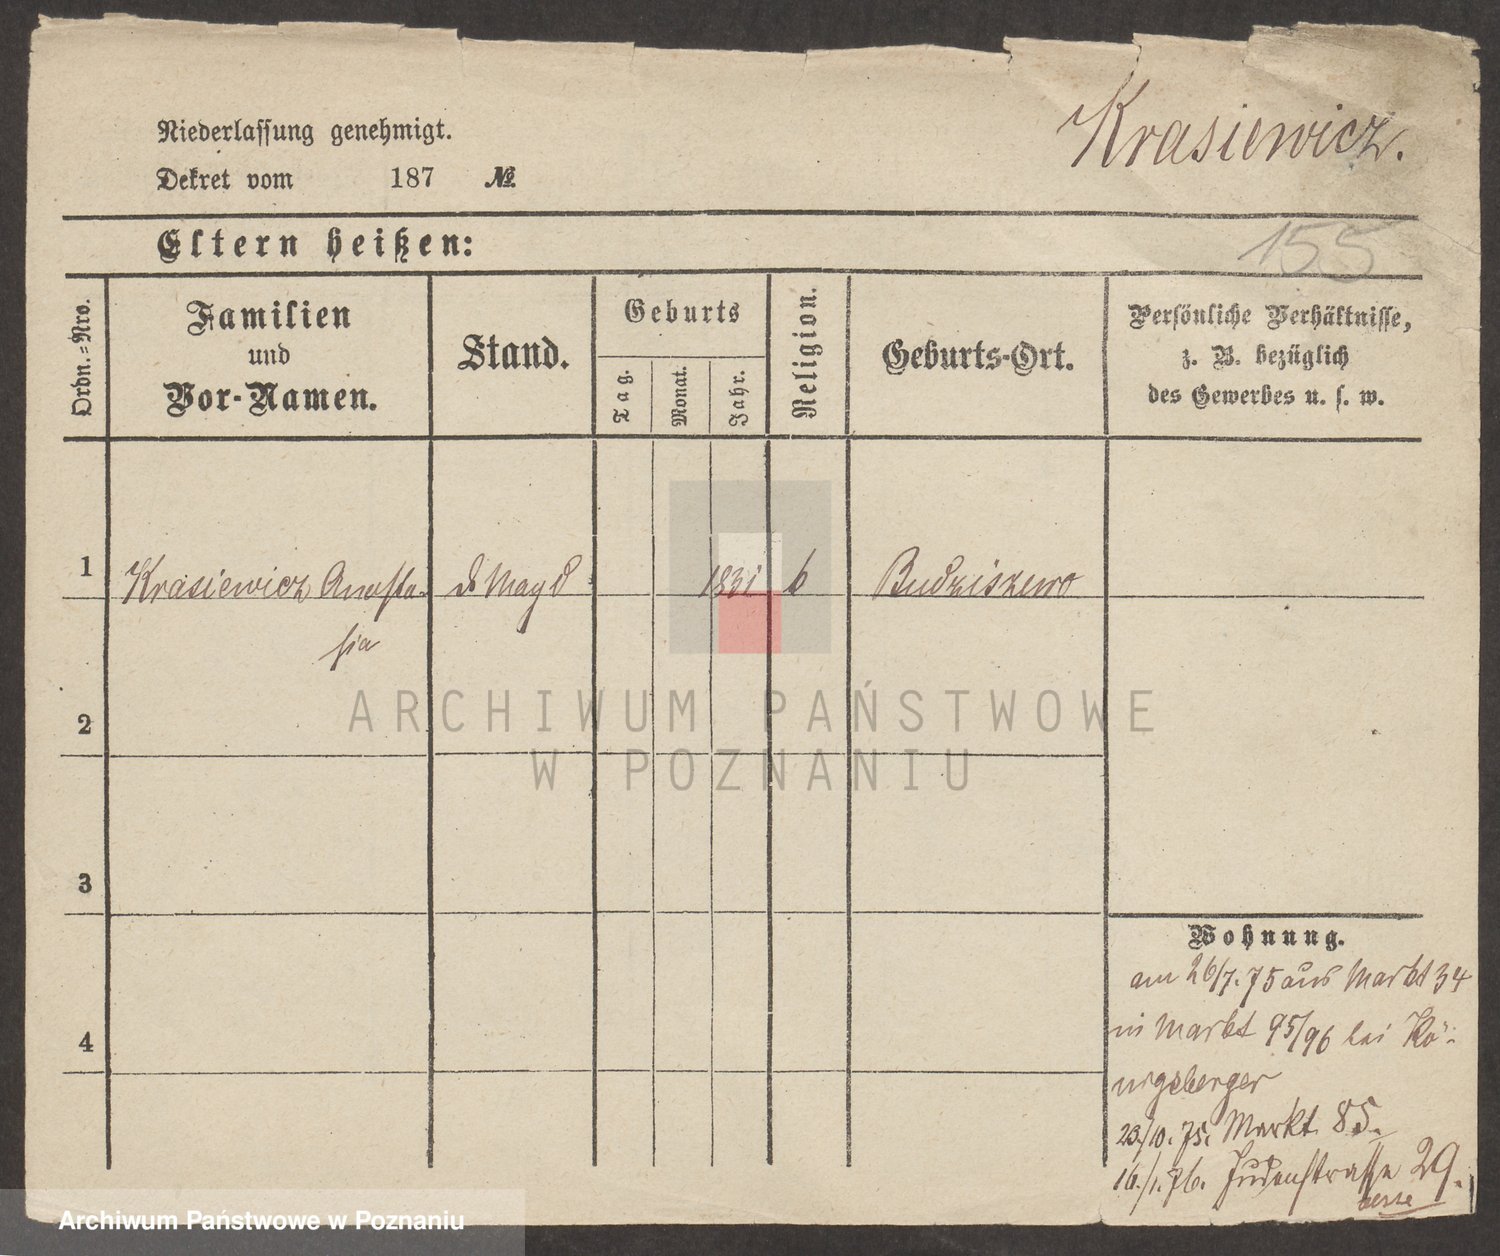 Krasiewicz.
Niederlassung genehmigt.
Dekret vom 187 №
155
Eltern heißen:
Ordn.=Nro.
Familien
und
Vor-Namen.
Stand.
Geburts
Tag.
Monat.
Jahr.
Religion.
Geburts-Ort.
Persönliche Verhältnisse,
z. B. bezüglich
des Gewerbes u. s. w.
1 Krasiewicz Anasta- Magd 1831 Budziszewo
sia
2
3
4
ARCHIWUM PAŃSTWOWE
W POZNANIU
Wohnung.
am 26/7. 75 aus Markt 34
in Markt 95/96 bei Kö-
nigsberger
23/10. 75. Markt 85.
16./1. 76. Judenstrasse 29.
Archiwum Państwowe w Poznaniu